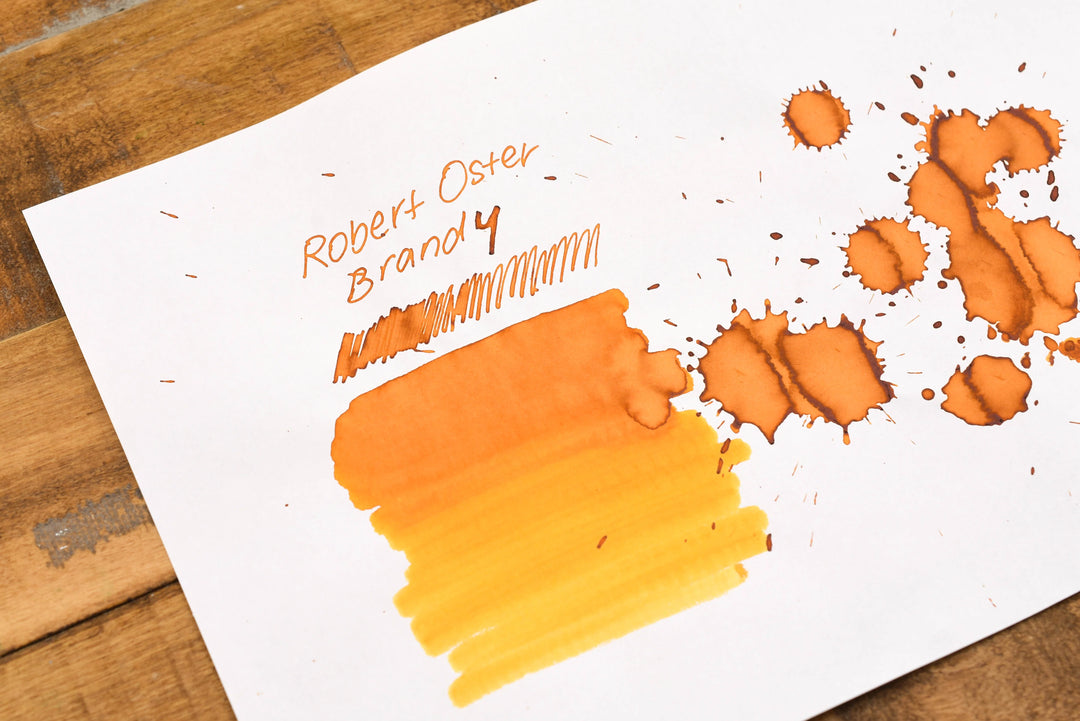 Robert Oster
Brandy